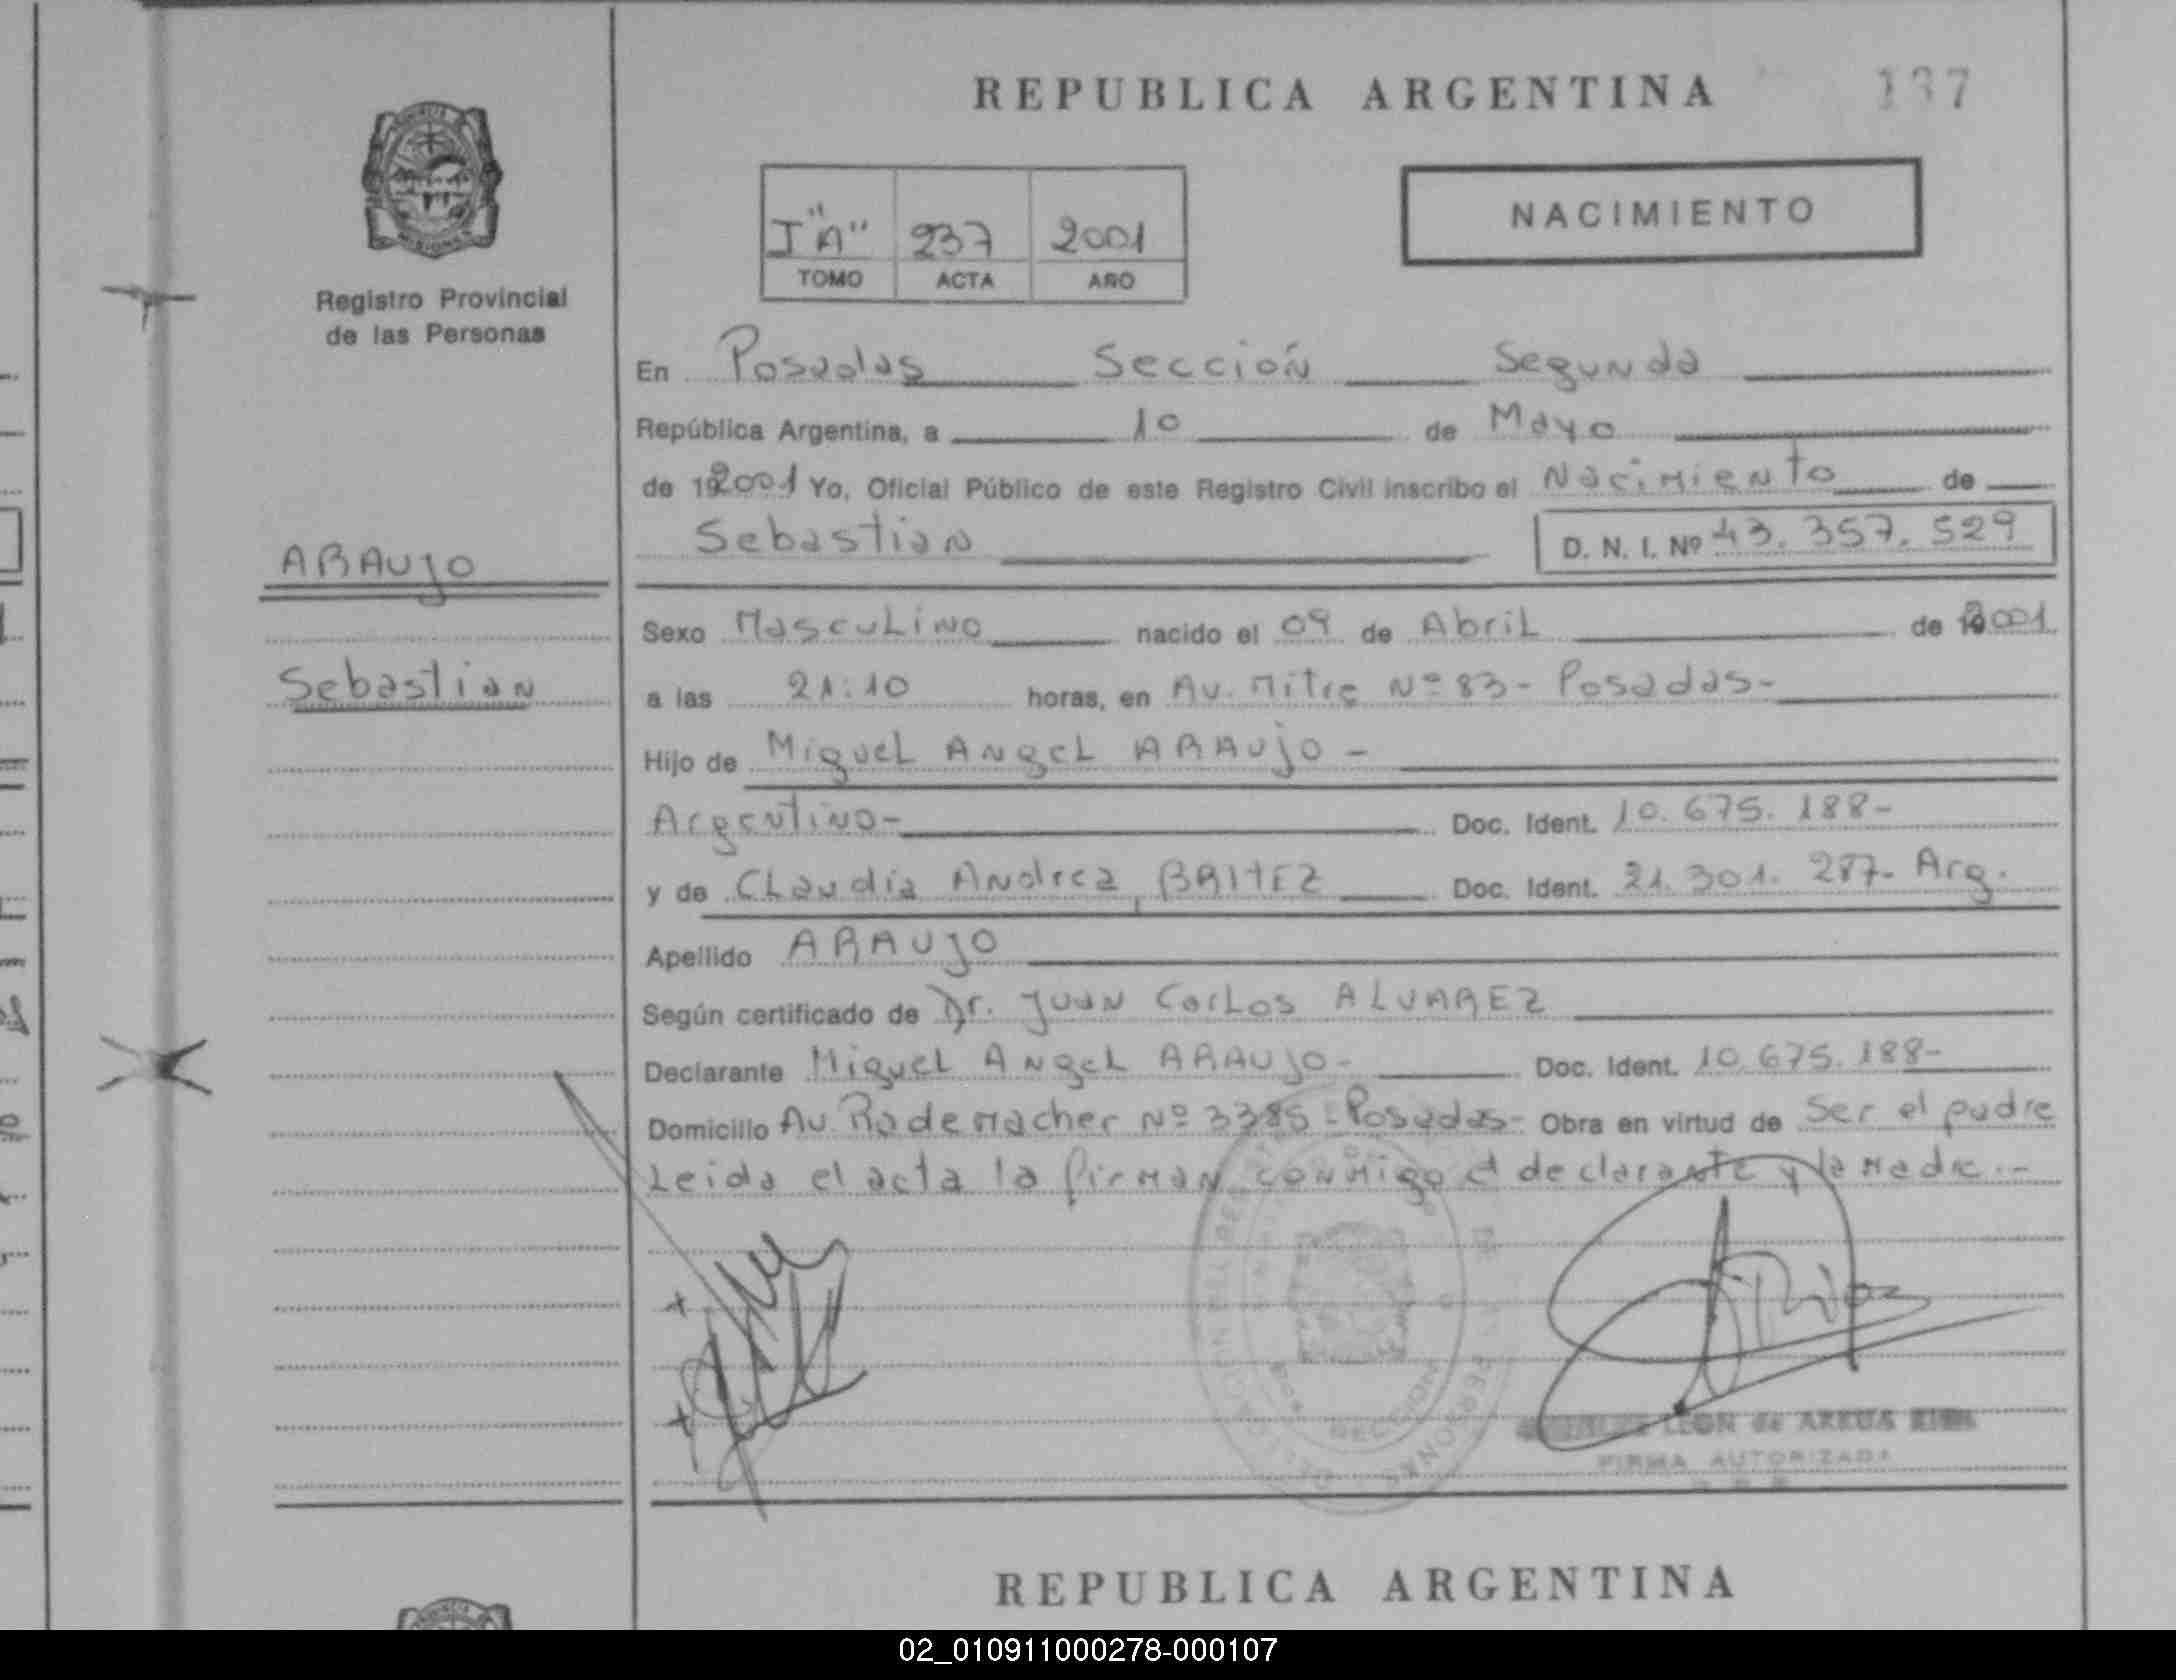 REPUBLICA ARGENTINA 137
Registro Provincial
de las Personas
I "A" 237 2001
TOMO ACTA AÑO
NACIMIENTO
En Posadas Sección Segunda
República Argentina, a 10 de Mayo
de 192001 Yo, Oficial Público de este Registro Civil inscribo el Nacimiento de
Sebastian D. N. I. Nº 43.357.529
ARAUJO
Sebastian
Sexo Masculino nacido el 09 de Abril de 2001
a las 21:10 horas, en Av. Mitre Nº 83 - Posadas -
Hijo de Miguel Angel ARAUJO -
Argentino - Doc. Ident. 10.675.188 -
y de Claudia Andrea BRITEZ Doc. Ident. 21.301.287 - Arg.
Apellido ARAUJO
Según certificado de Dr. Juan Carlos ALVAREZ
Declarante Miguel Angel ARAUJO - Doc. Ident. 10.675.188 -
Domicilio Av. Rademacher Nº 3385 - Posadas - Obra en virtud de Ser el padre
Leida el acta la firman conmigo el declarante y la Madre . -
SECCION
PERSONAS
LEON de
FIRMA AUTORIZADA
REPUBLICA ARGENTINA
02_010911000278-000107